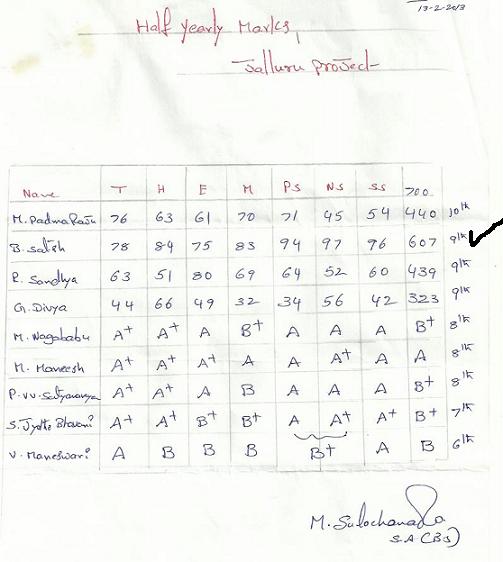 13-2-2013
Half Yearly Marks,
Jalluru project
Name T H E M PS NS SS 700
M. Padma Raju 76 63 61 70 71 45 54 440 10th
B. Satish 78 84 75 83 94 97 96 607 9th
R. Sandhya 63 51 80 69 64 52 60 439 9th
G. Divya 44 66 49 32 34 56 42 323 9th
M. Nagababu A+ A+ A B+ A A A B+ 8th
M. Maneesh A+ A+ A A A A+ A A 8th
P. VV. A+ A+ A B A A A B+ 8th
S. Jyothi Bhavani A+ A+ B+ B+ A A+ A+ B+ 7th
V. Maneswari A B B B B+ A B 6th
M. Sulochana
S.A (BS)